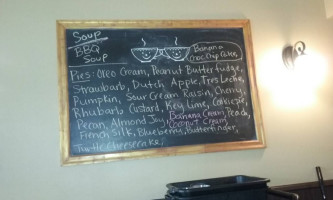 Soup
BBQ
Soup
Banana
Choc Chip Cake
Pies: Oleo Cream, Peanut Butter fudge,
Strawbarb, Dutch Apple, Tres Leche,
Pumpkin, Sour Cream Raisin, Cherry,
Rhubarb, Custard, Key Lime,
Pecan, Almond Joy, Banana Cream, Peach,
Coconut Cream
French Silk, Blueberry, Butterfinger,
Turtle Cheesecake